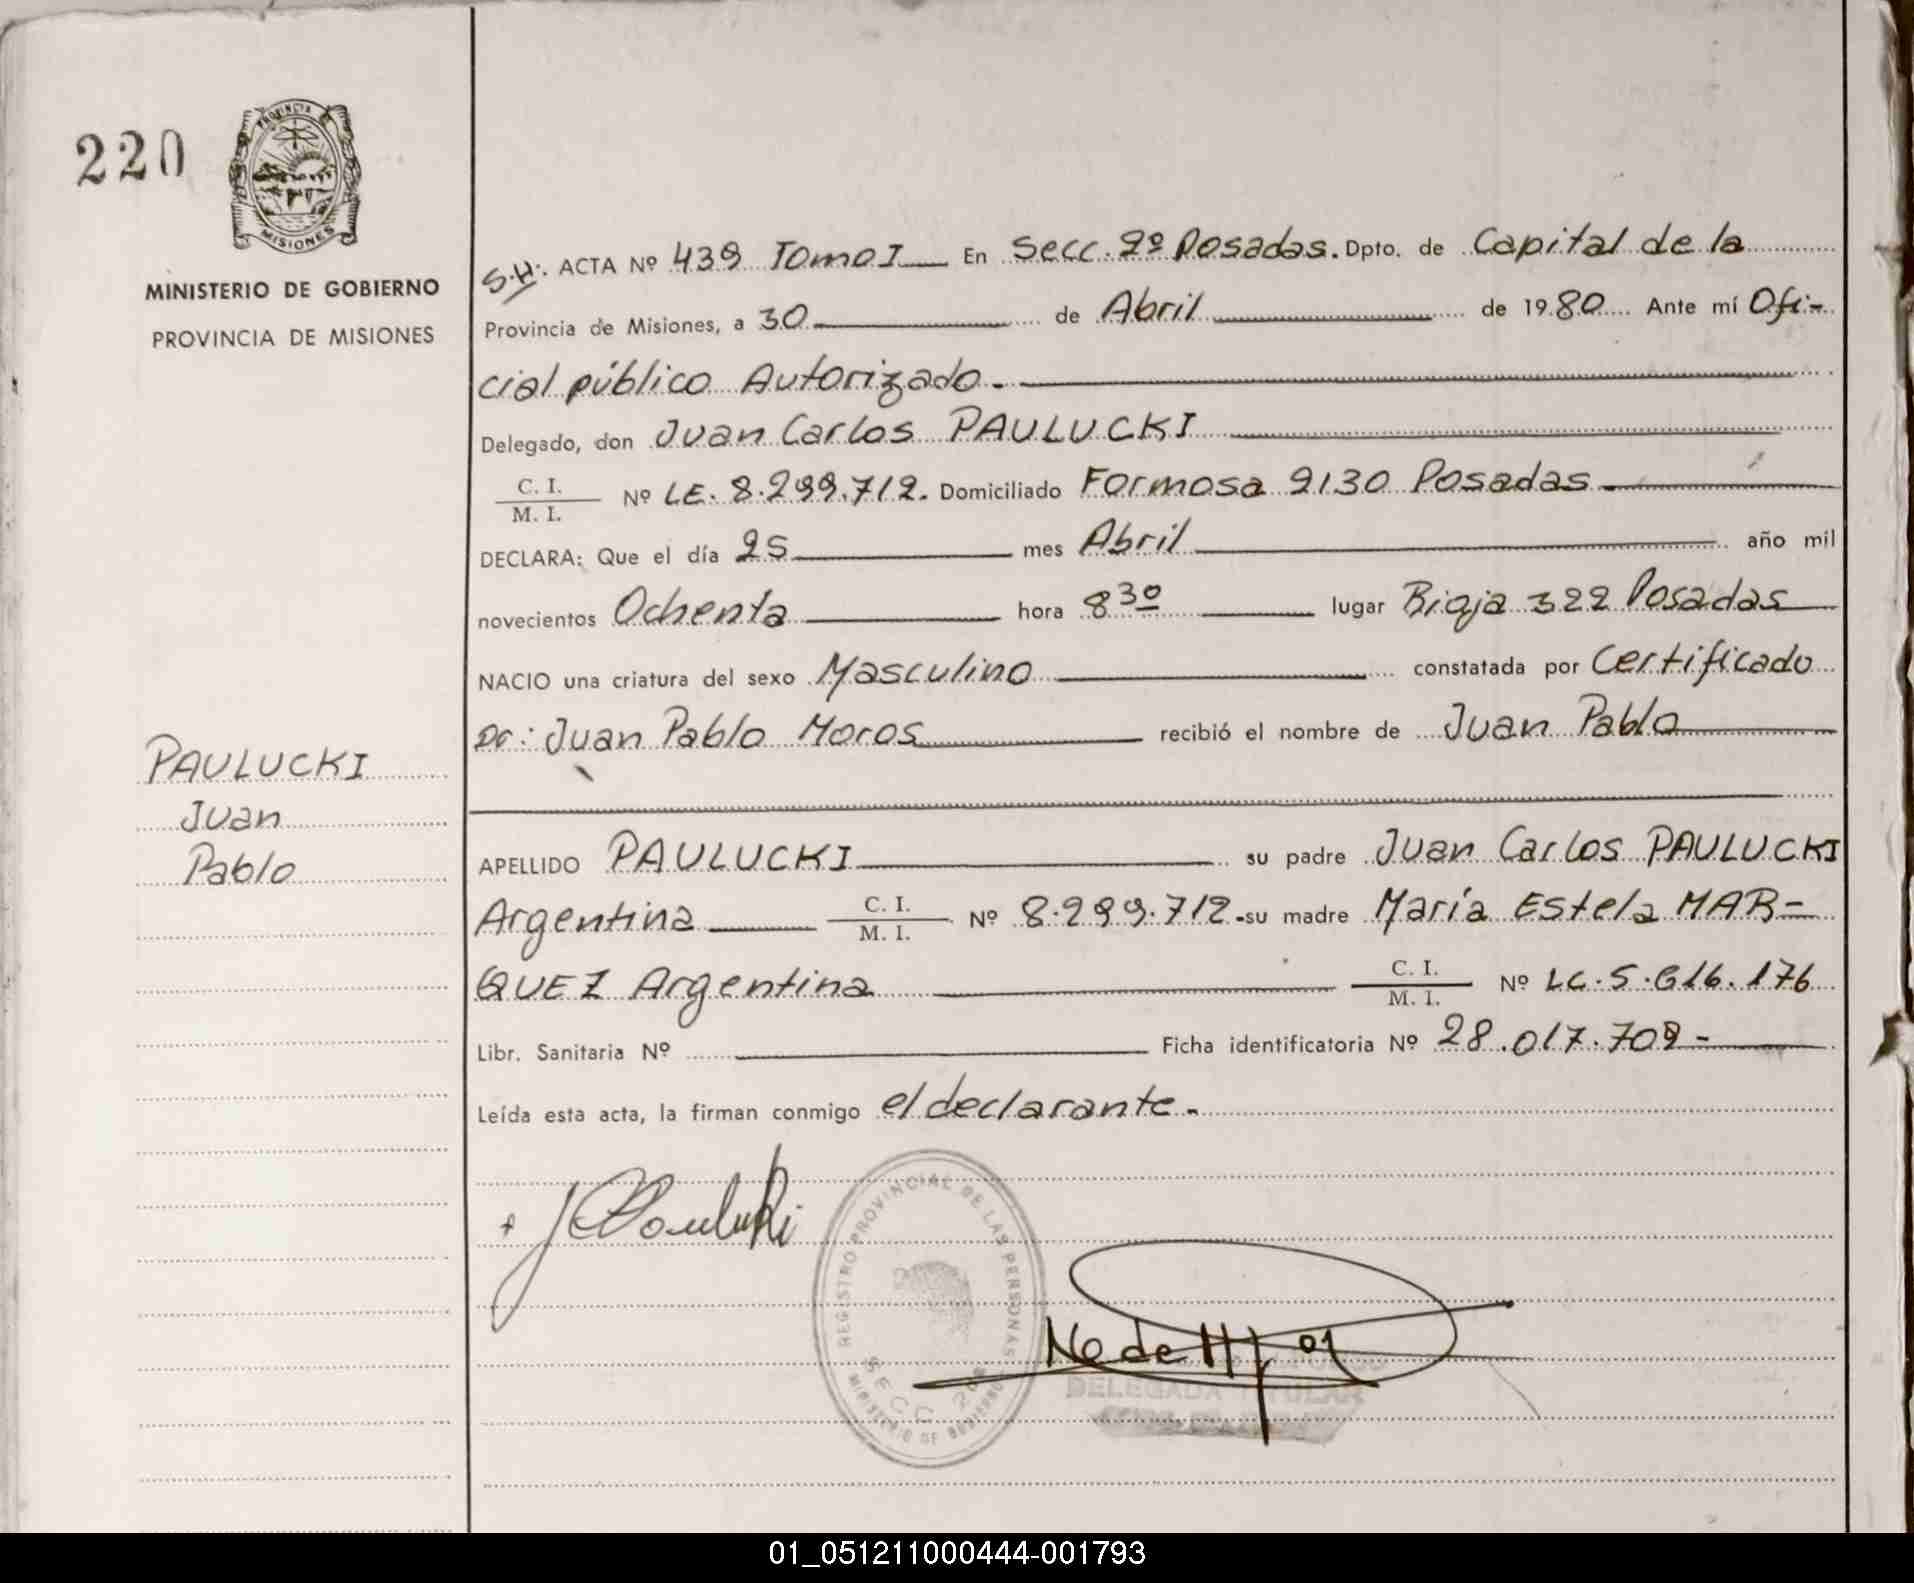 220
PROVINCIA
MISIONES
MINISTERIO DE GOBIERNO
PROVINCIA DE MISIONES
S.H: ACTA Nº 439 Tomo I En Secc. 2º Posadas. Dpto. de Capital de la
Provincia de Misiones, a 30 de Abril de 1980 Ante mí Ofi-
cial público Autorizado.
Delegado, don Juan Carlos PAULUCKI
C. I.
M. I.
Nº LE. 8.299.712. Domiciliado Formosa 2130 Posadas
DECLARA: Que el día 25 mes Abril año mil
novecientos Ochenta hora 8 30 lugar Rioja 322 Posadas
NACIO una criatura del sexo Masculino constatada por Certificado
Dr: Juan Pablo Moros recibió el nombre de Juan Pablo
PAULUCKI
Juan
Pablo
APELLIDO PAULUCKI su padre Juan Carlos PAULUCKI
Argentina C. I. M. I. Nº 8.299.712. su madre María Estela MAR-
QUEZ Argentina C. I. M. I. Nº LC. 5.616.176
Libr. Sanitaria Nº Ficha identificatoria Nº 28.017.709 -
Leída esta acta, la firman conmigo el declarante.
REGISTRO PROVINCIAL DE LAS PERSONAS
SECC 2da
MINISTERIO DE GOBIERNO
DELEGADA TITULAR
01_051211000444-001793